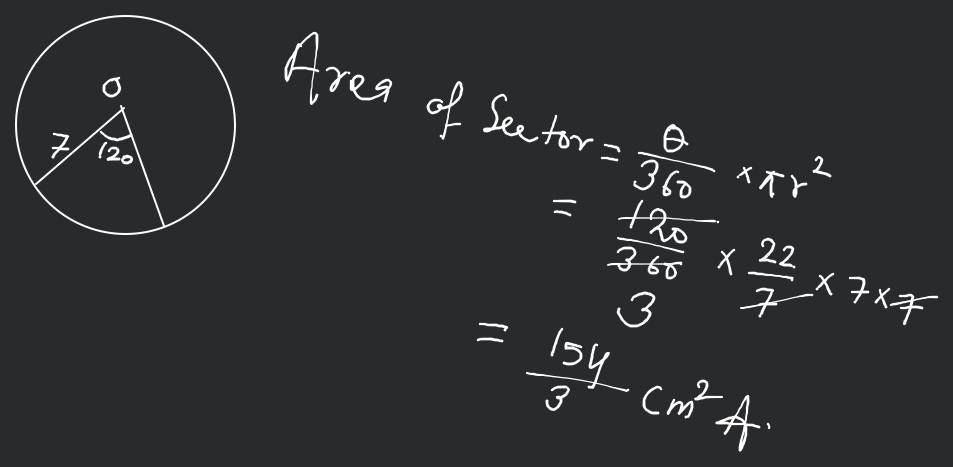 O
7
120
Area of Sector = θ/360 × πr²
= 120/360 × 22/7 × 7 × 7
3
= 154/3 cm² A.